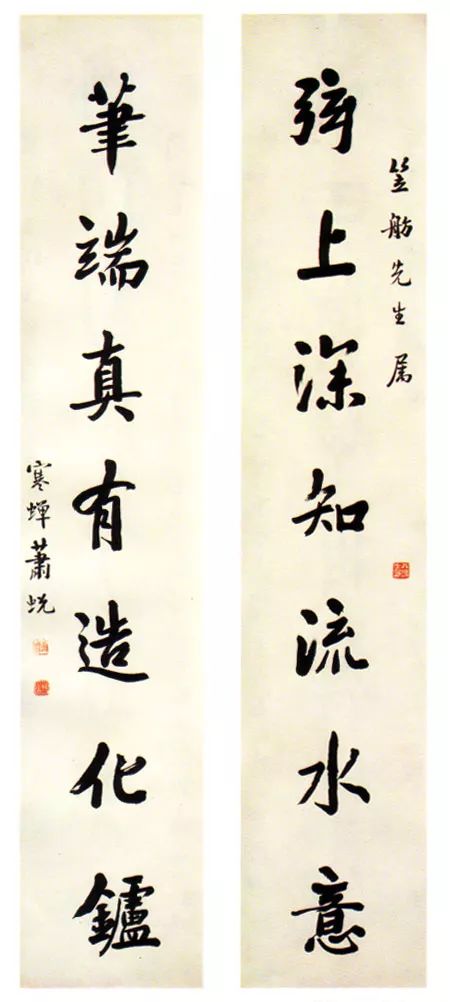 弦上深知流水意
笠舫先生属
筆端真有造化鑪
寒蟬蕭蜕